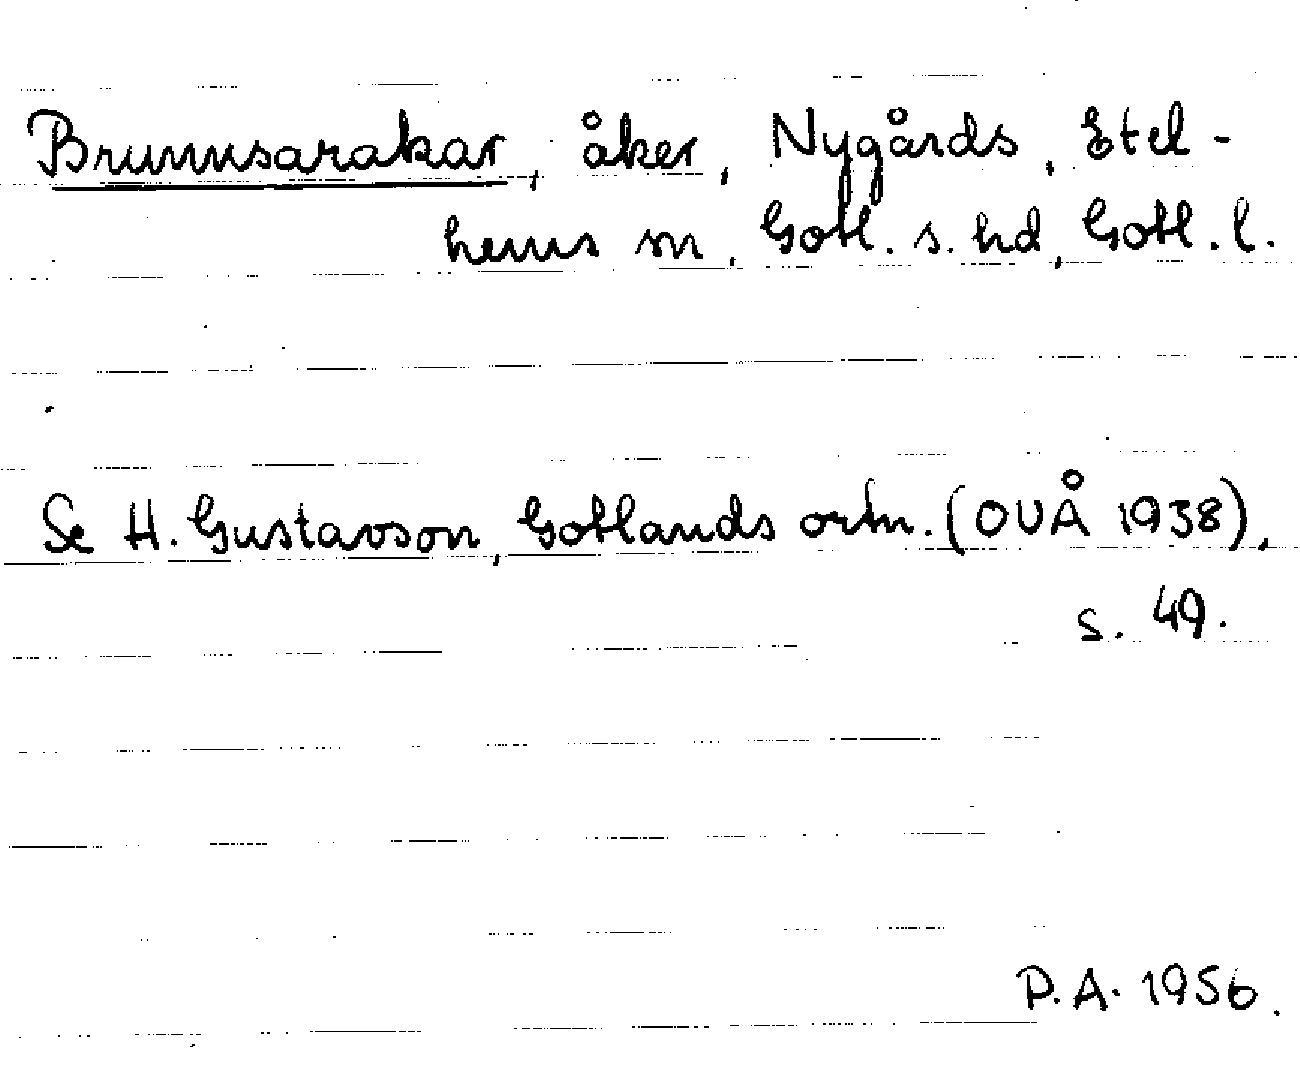 Brunnsarakar, åker, Nygårds, Etel-
hems sn, Gotl. s. hd, Gotl. l.
Se H. Gustavson, Gotlands ortn. (OUÅ 1938),
s. 49.
P.A. 1956.